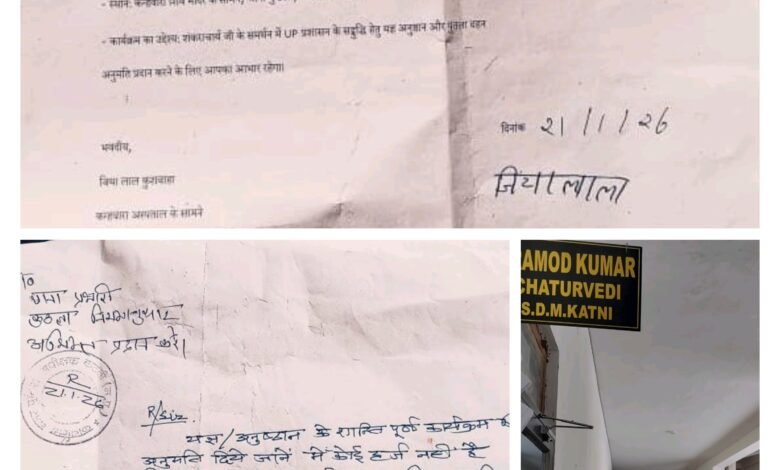 - स्थान: कन्हवारा
- कार्यक्रम का उद्देश्य: शंकराचार्य जी के समर्थन में UP प्रशासन के सद्बुद्धि हेतु यज्ञ अनुष्ठान और पुतला दहन
अनुमति प्रदान करने के लिए आपका आभार रहेगा।
दिनांक 21/1/26
भवदीय,
जिया लाल कुशवाहा
जियालाल
कन्हवारा अस्पताल के सामने
To
थाना प्रभारी
कुठला नियमानुसार
अभिमत प्रदान करें।
R
21.1.26
R/Sir
यज्ञ/अनुष्ठान के शान्ति पूर्ण कार्यक्रम
अनुमति दिये जाने में कोई हर्ज नही है
AMOD KUMAR
CHATURVEDI
S.D.M.KATNI